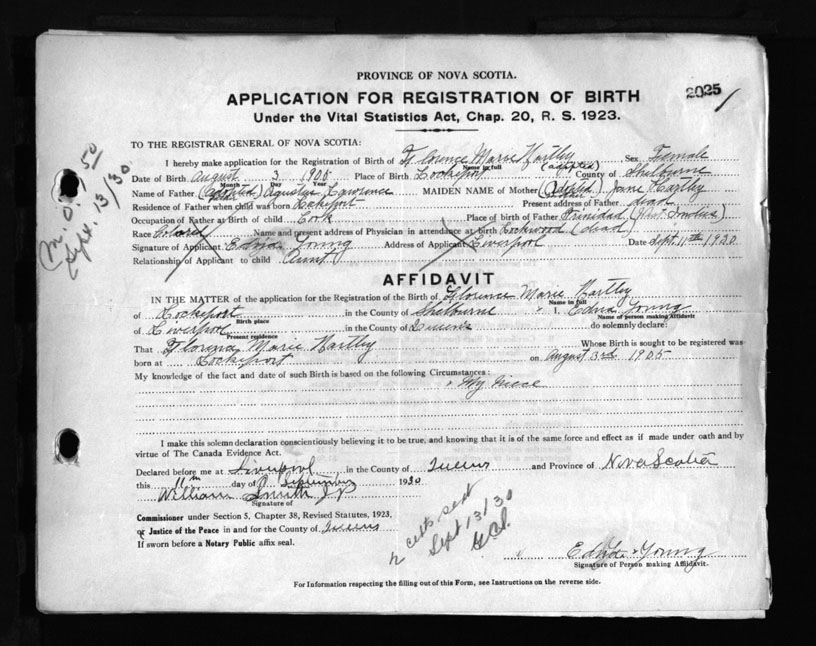 PROVINCE OF NOVA SCOTIA.
2025
APPLICATION FOR REGISTRATION OF BIRTH
Under the Vital Statistics Act, Chap. 20, R. S. 1923.
M. O. 50
Sept. 13/30
TO THE REGISTRAR GENERAL OF NOVA SCOTIA:
I hereby make application for the Registration of Birth of Florence Marie Hartley (adopted) Sex Female
Name in full
Date of Birth August 3 1905 Place of Birth Lockeport County of Shelburne
Month Day Year
Name of Father (adopted) Lawrence MAIDEN NAME of Mother (Adopted) Jane Hartley
Residence of Father when child was born Lockeport Present address of Father dead
Occupation of Father at Birth of child Cook Place of birth of Father Trinidad (West Indies)
Race Colored Name and present address of Physician in attendance at birth Lockwood (dead)
Signature of Applicant Edna Young Address of Applicant Liverpool Date Sept. 11th 1930
Relationship of Applicant to child Aunt
AFFIDAVIT
IN THE MATTER of the application for the Registration of the Birth of Florence Marie Hartley
Name in full
of Lockeport in the County of Shelburne I, Edna Young
Birth place Name of person making Affidavit
of Liverpool in the County of Queens do solemnly declare:
Present residence
That Florence Marie Hartley Whose Birth is sought to be registered was
born at Lockeport on August 3rd 1905
My knowledge of the fact and date of such Birth is based on the following Circumstances:
My niece
I make this solemn declaration conscientiously believing it to be true, and knowing that it is of the same force and effect as if made under oath and by
virtue of The Canada Evidence Act.
Declared before me at Liverpool in the County of Queens and Province of Nova Scotia
this 11th day of September 1930
William Smith J P
Signature of
Commissioner under Section 5, Chapter 38, Revised Statutes, 1923.
or Justice of the Peace in and for the County of Queens
If sworn before a Notary Public affix seal.
2 certs sent
Sept 13/30
Edna Young
Signature of Person making Affidavit.
For Information respecting the filling out of this Form, see Instructions on the reverse side.